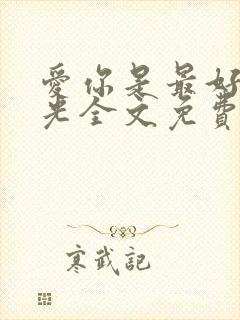 愛你是最好
光全文免費
寒武記